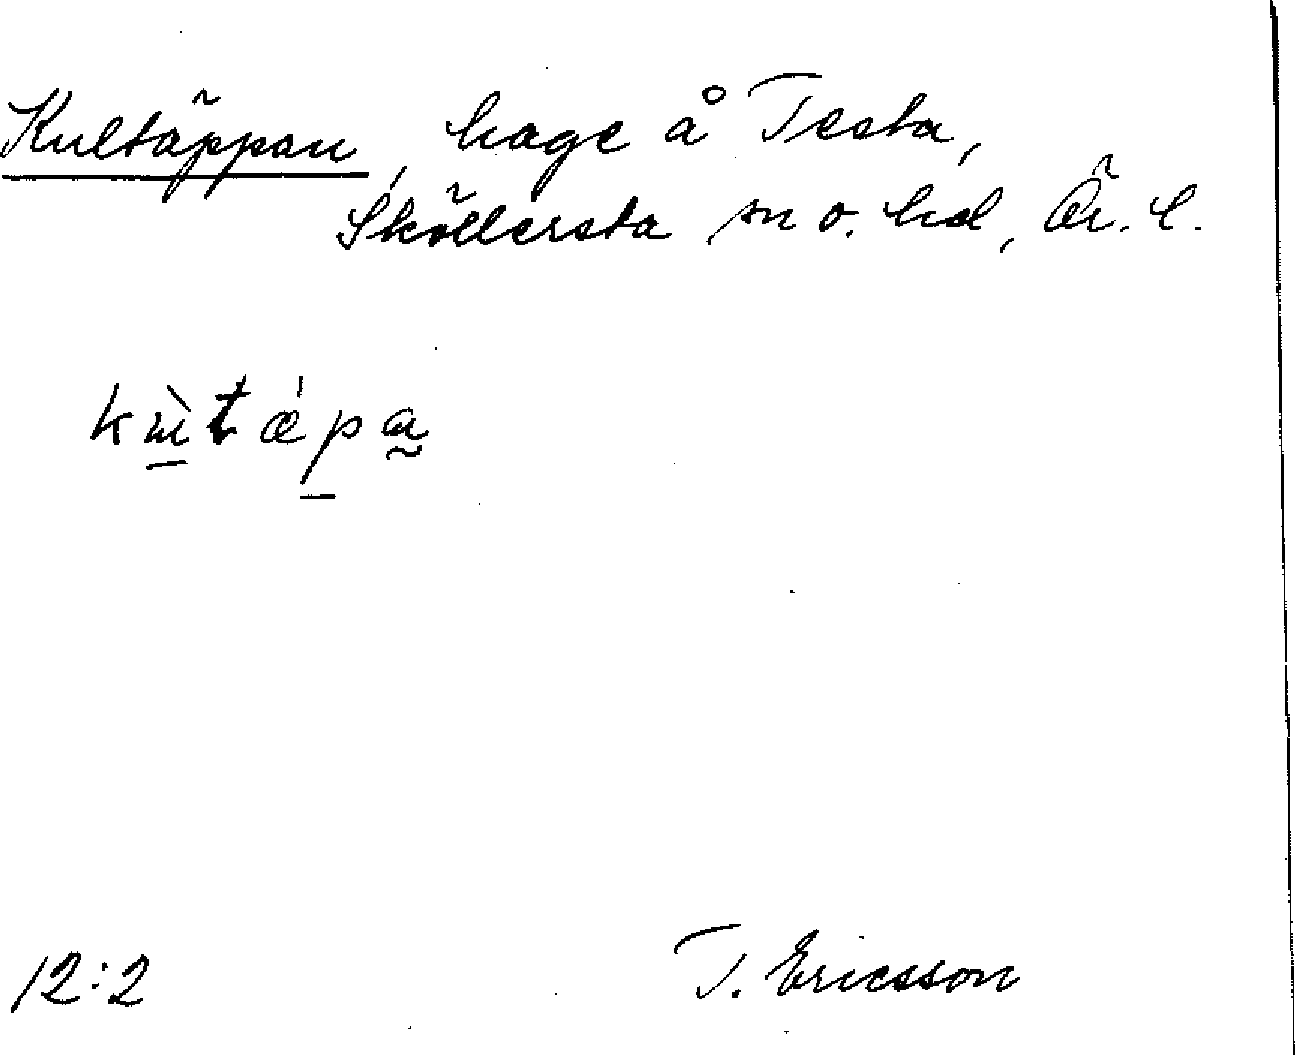 Kultäppan, hage å Testa,
Sköllersta sn o. hd, Ör. l.
12:2
T. Ericsson